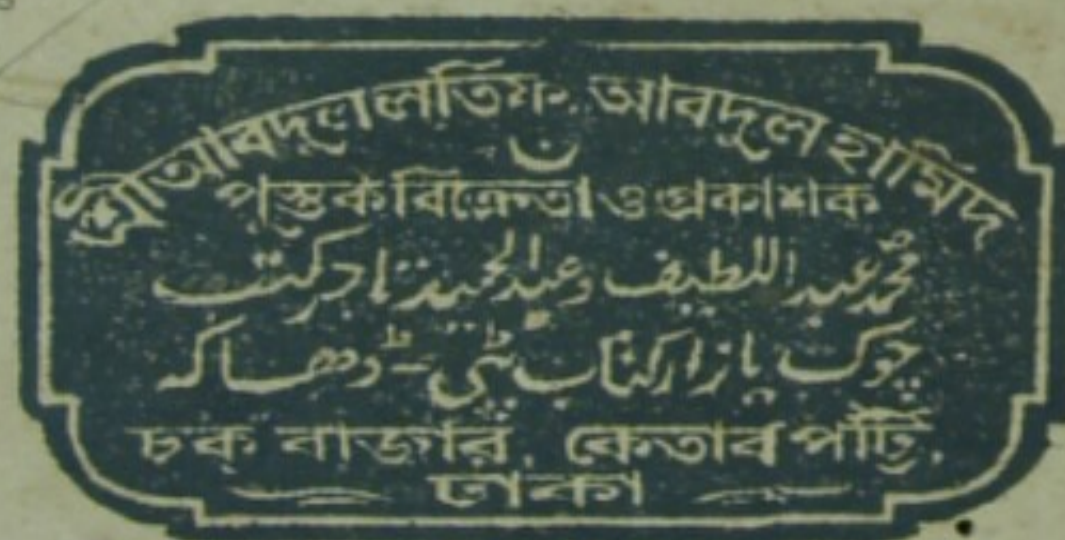 শ্রীআবদুল লতিফ. আবদুল হামিদ
পুস্তক বিক্রেতা ও প্রকাশক
محمد عبد اللطیف وعبد الحمید تاجر کتب
چوک بازار کتاب پٹی - ڈھاکہ
চক বাজার, কেতাব পট্টি,
ঢাকা